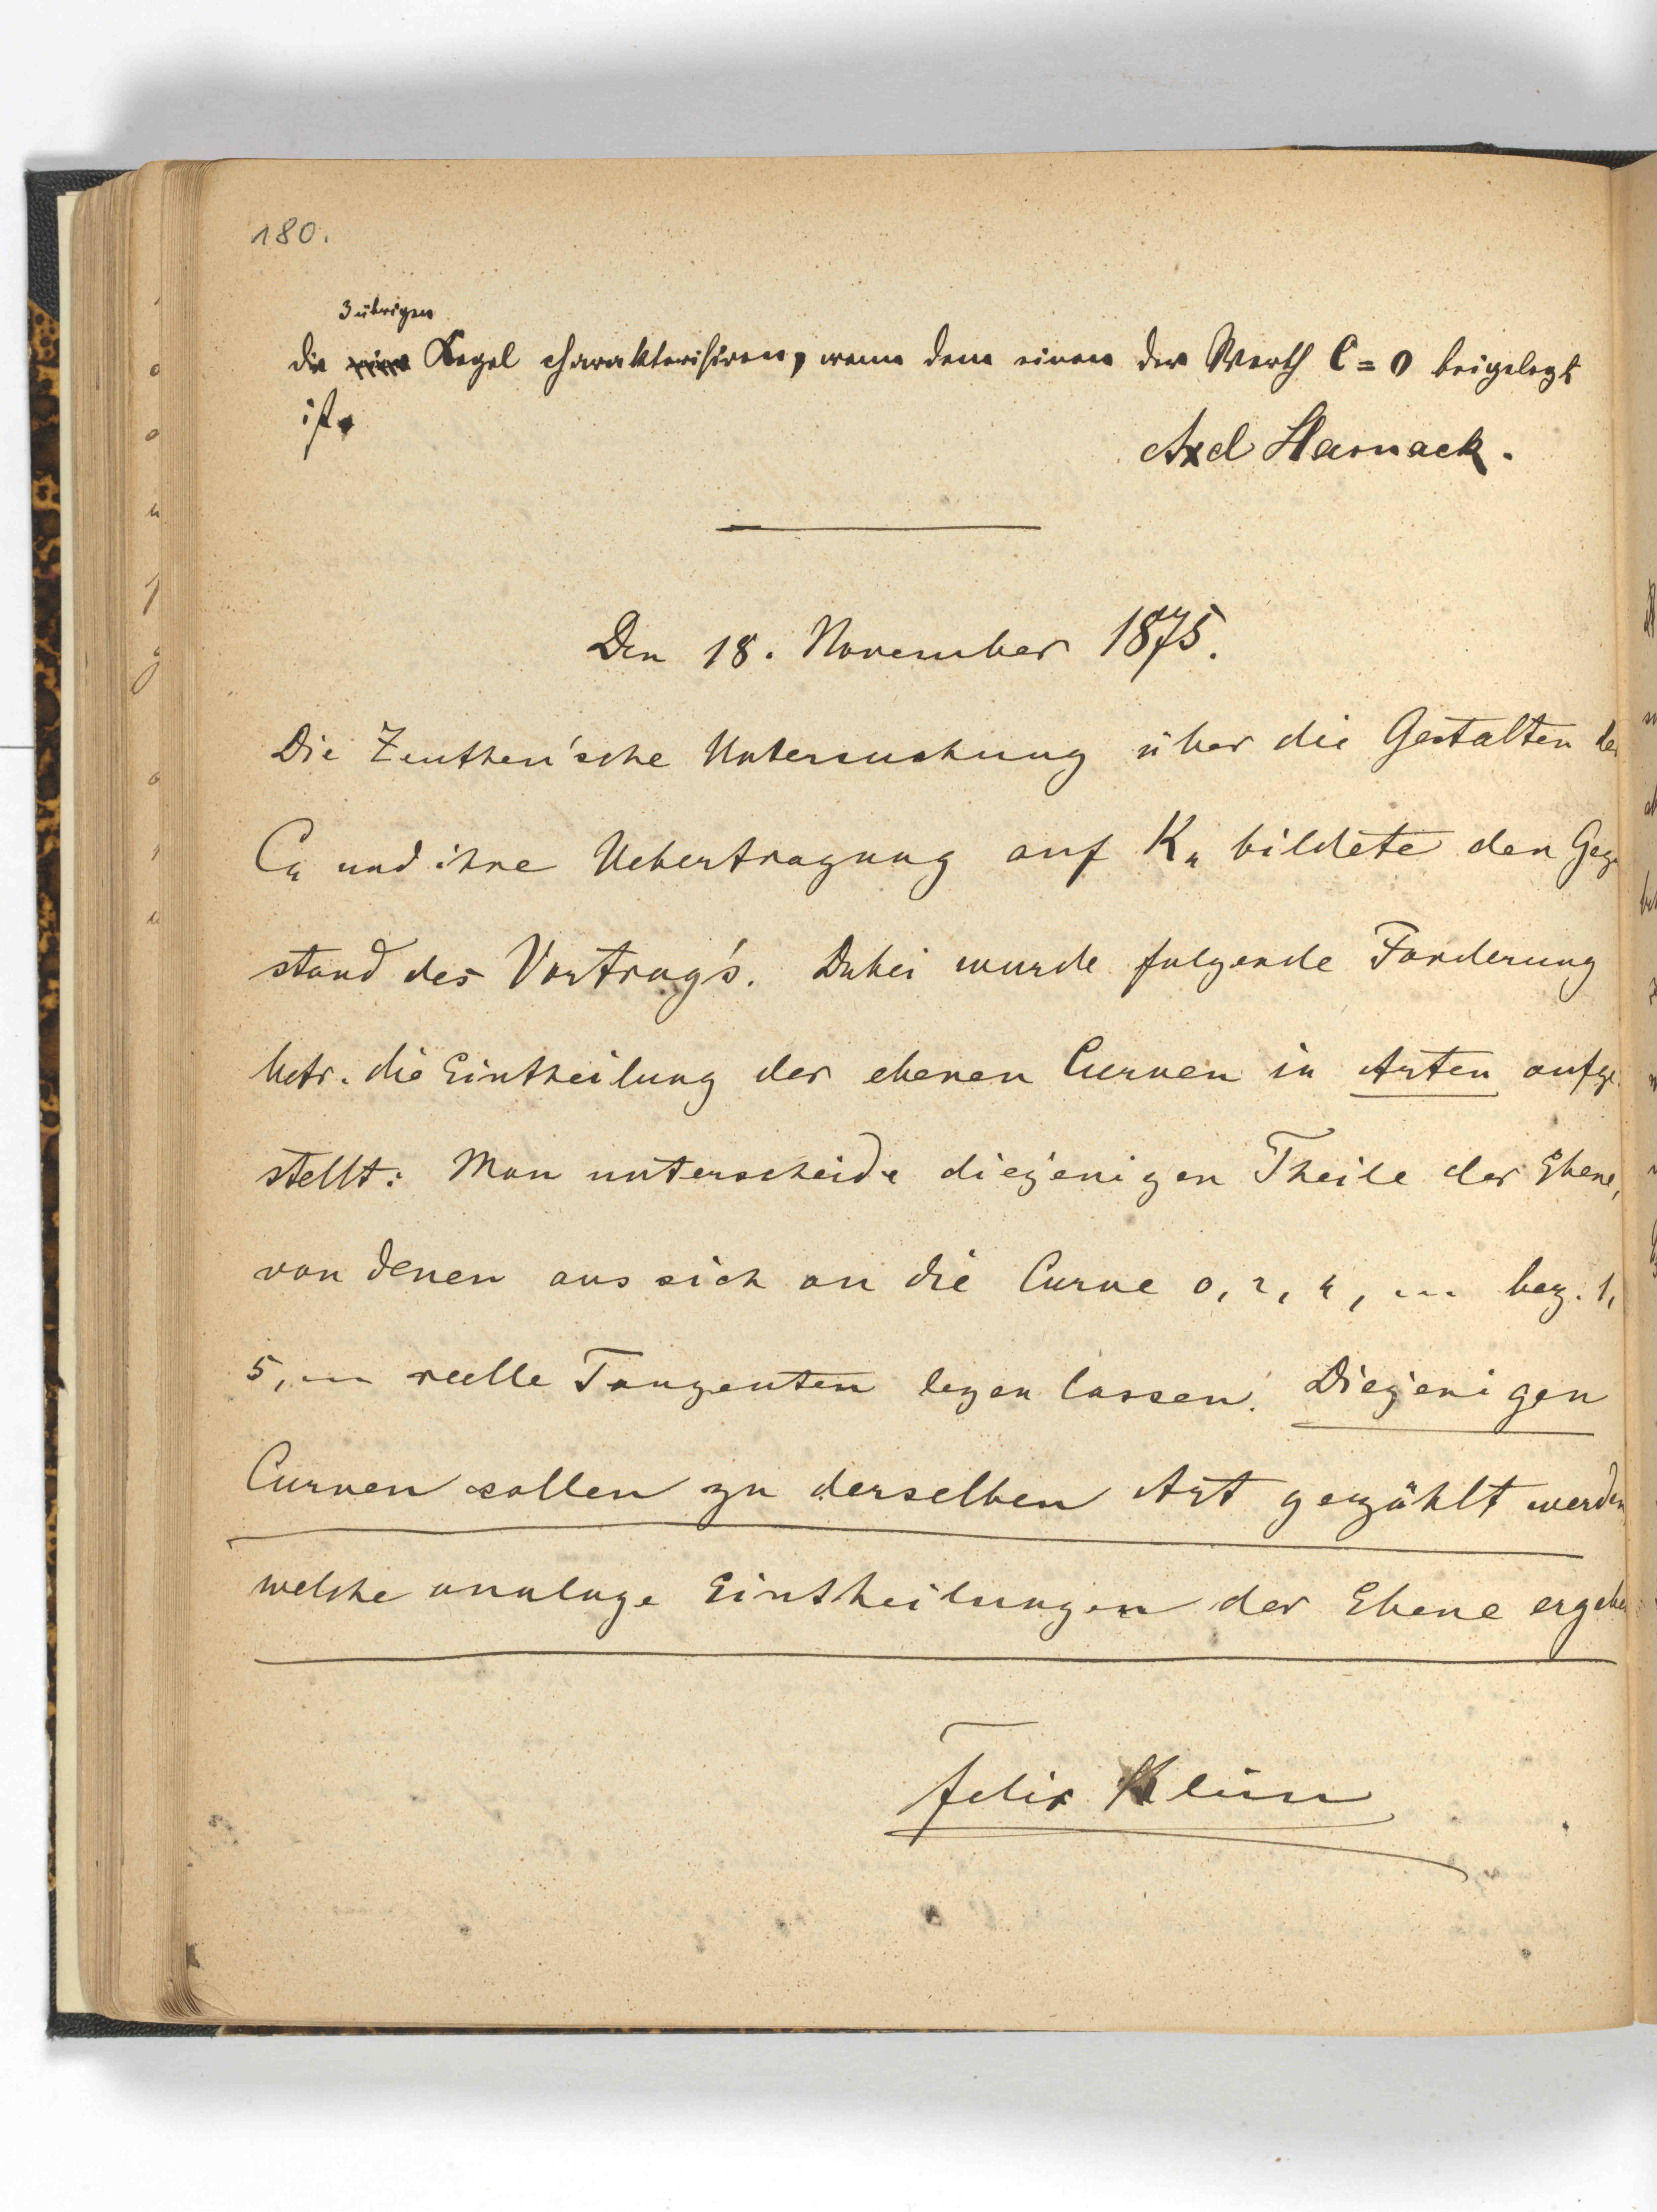 180.
3 übrigen
die Kegel charakterisiren, wenn dem einen der Werth C = 0 beigelegt
ist.
Axel Harnack.
Den 18. November 1875.
Die Zeuthen'sche Untersuchung über die Gestalten der
C4 und ihre Uebertragung auf K4 bildete den Gege
stand des Vortrag's. Dabei wurde folgende Forderung
betr. die Eintheilung der ebenen Curven in Arten aufge
stellt: Man unterscheide diejenigen Theile der Ebene,
von denen aus sich an die Curve 0, 2, 4, ... bez. 1,
5, ... reelle Tangenten legen lassen. Diejenigen
Curven sollen zu derselben Art gezählt werden,
welche analoge Eintheilungen der Ebene ergeben
Felix Klein